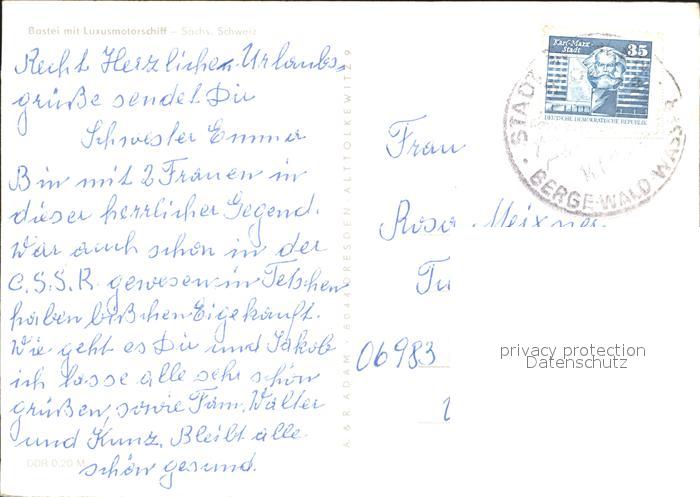 Bastei mit Luxusmotorschiff – Sächs. Schweiz
Recht Herzlichen Urlaubs-
grüße sendet Dir
Schwester Emma
Bin mit 2 Frauen in
dieser herrlicher Gegend.
War auch schon in der
C.S.S.R. gewesen in Tetschen
haben bißchen Eigekauft.
Wie geht es Dir und Jakob
ich lasse alle sehr schön
grüßen, sowie Fam. Walter
und Kunz. Bleibt alle
schön gesund.
DDR 0,20 M
A & R ADAM · 8044 DRESDEN, ALTTOLKEWITZ 9
Karl-Marx-
Stadt
35
DEUTSCHE DEMOKRATISCHE REPUBLIK
STADT
BERGE·WALD·WASSER
Frau
Rosa Meixner
06983
privacy protection
Datenschutz